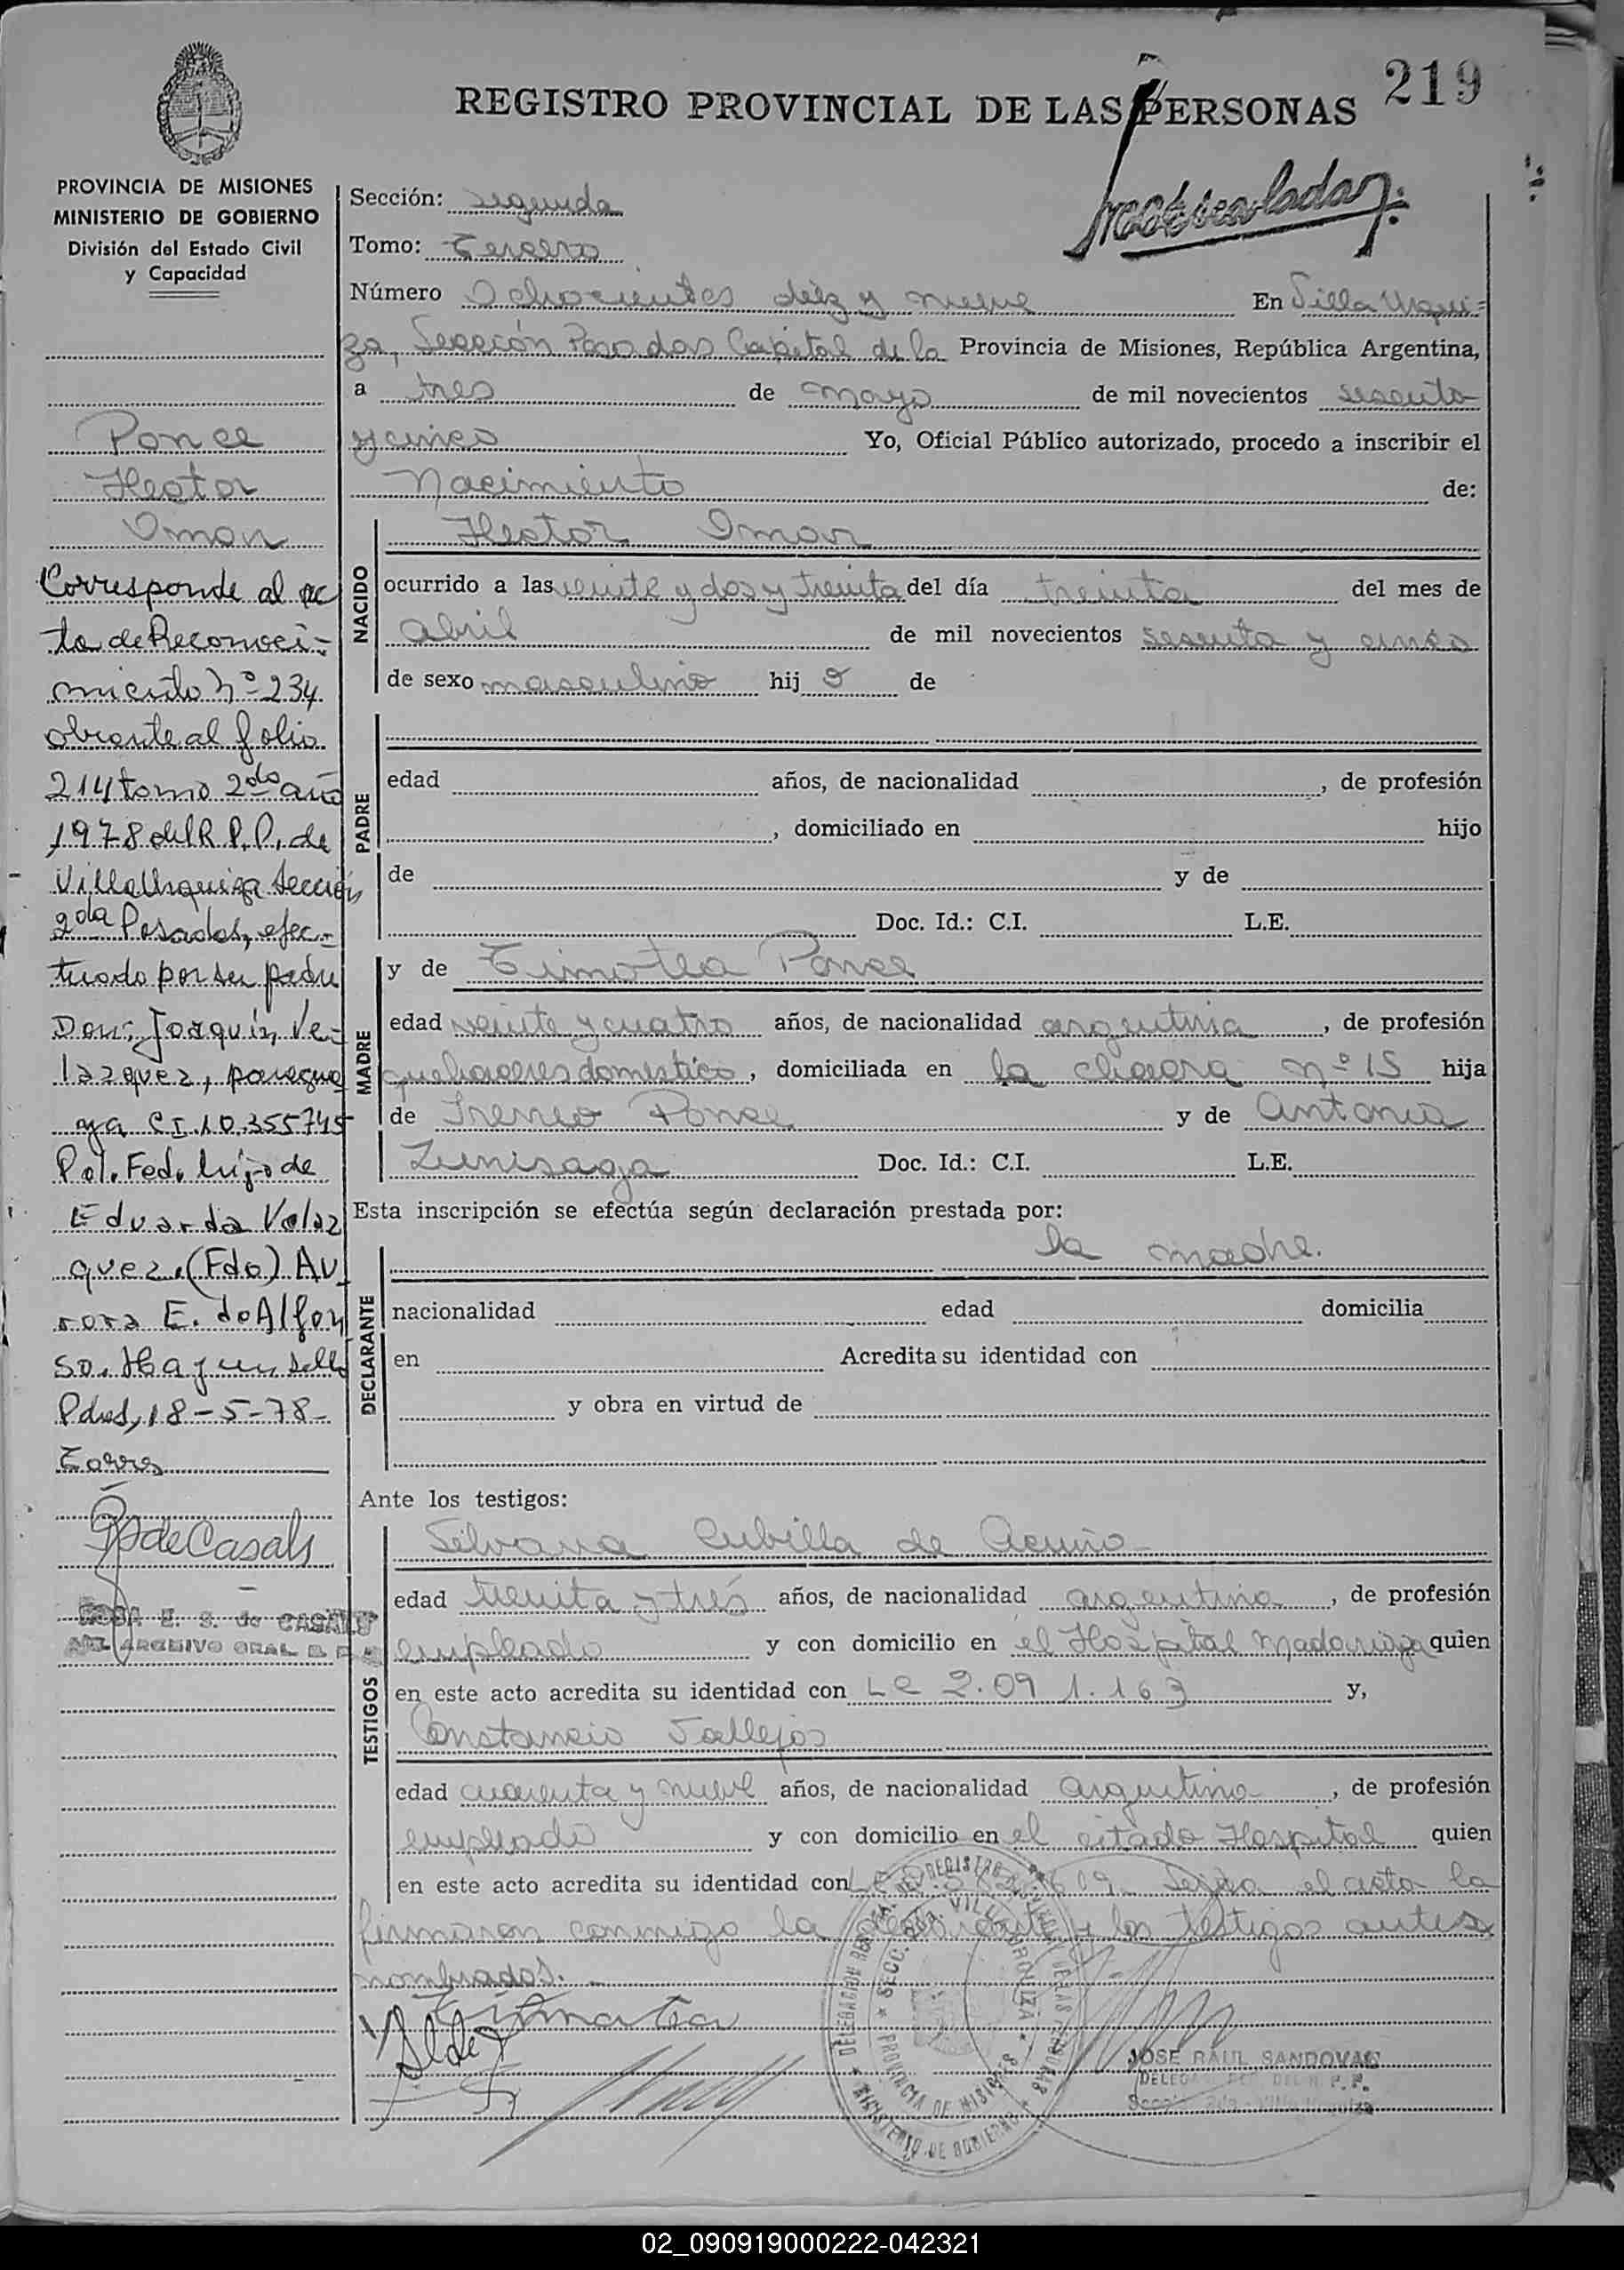 219
REGISTRO PROVINCIAL DE LAS PERSONAS
PROVINCIA DE MISIONES
MINISTERIO DE GOBIERNO
División del Estado Civil
y Capacidad
Ponce
Hector
Omar
Corresponde al ac
ta de Reconoci-
miento Nº 234
obrante al folio
214 tomo 2do año
1978 del R.P.P. de
Villa Urquiza Sección
2da Posadas, efec-
tuado por su padre
Don: Joaquín Ve-
lazquez, paragua
ya CI.10.355745
Pol. Fed. hijo de
Eduarda Velaz
quez. (Fdo) Au
rora E. de Alfon
so. Hay un sello
Pdas, 18-5-78-
Torres
de Casals
ROSA E. S. de CASALS
ARCHIVO GRAL
Matriculado
Sección: segunda
Tomo: Tercero
Número Ochocientos diez y nueve En Villa Urqui-
za, Sección Posadas Capital de la Provincia de Misiones, República Argentina,
a tres de mayo de mil novecientos sesenta
y cinco Yo, Oficial Público autorizado, procedo a inscribir el
Nacimiento de:
NACIDO
Hector Omar
ocurrido a las veinte y dos y treinta del día treinta del mes de
abril de mil novecientos sesenta y cinco
de sexo masculino hij o de
PADRE
edad años, de nacionalidad , de profesión
, domiciliado en hijo
de y de
Doc. Id.: C.I. L.E.
MADRE
y de Timotea Ponce
edad veinte y cuatro años, de nacionalidad argentina , de profesión
quehaceres domestico , domiciliada en la chacra nº 15 hija
de Ireneo Ponce y de Antonia
Zunisaga Doc. Id.: C.I. L.E.
Esta inscripción se efectúa según declaración prestada por:
la madre.
DECLARANTE
nacionalidad edad domicilia
en Acredita su identidad con
y obra en virtud de
Ante los testigos:
TESTIGOS
Silvana Cubilla de Acuña
edad treinta y tres años, de nacionalidad argentina , de profesión
empleado y con domicilio en el Hospital Madariaga quien
en este acto acredita su identidad con LC 2.091.163 y,
Constancio Vallejos
edad cuarenta y nueve años, de nacionalidad argentina , de profesión
empleado y con domicilio en el citado Hospital quien
en este acto acredita su identidad con 619 el acta la
firmaron conmigo la y los testigos antes
nombrados.
Timotea
JOSE RAUL SANDOVAL
SECC. 2da. VILLA URQUIZA
PROVINCIA DE MISIONES
MINISTERIO DE GOBIERNO
02_090919000222-042321